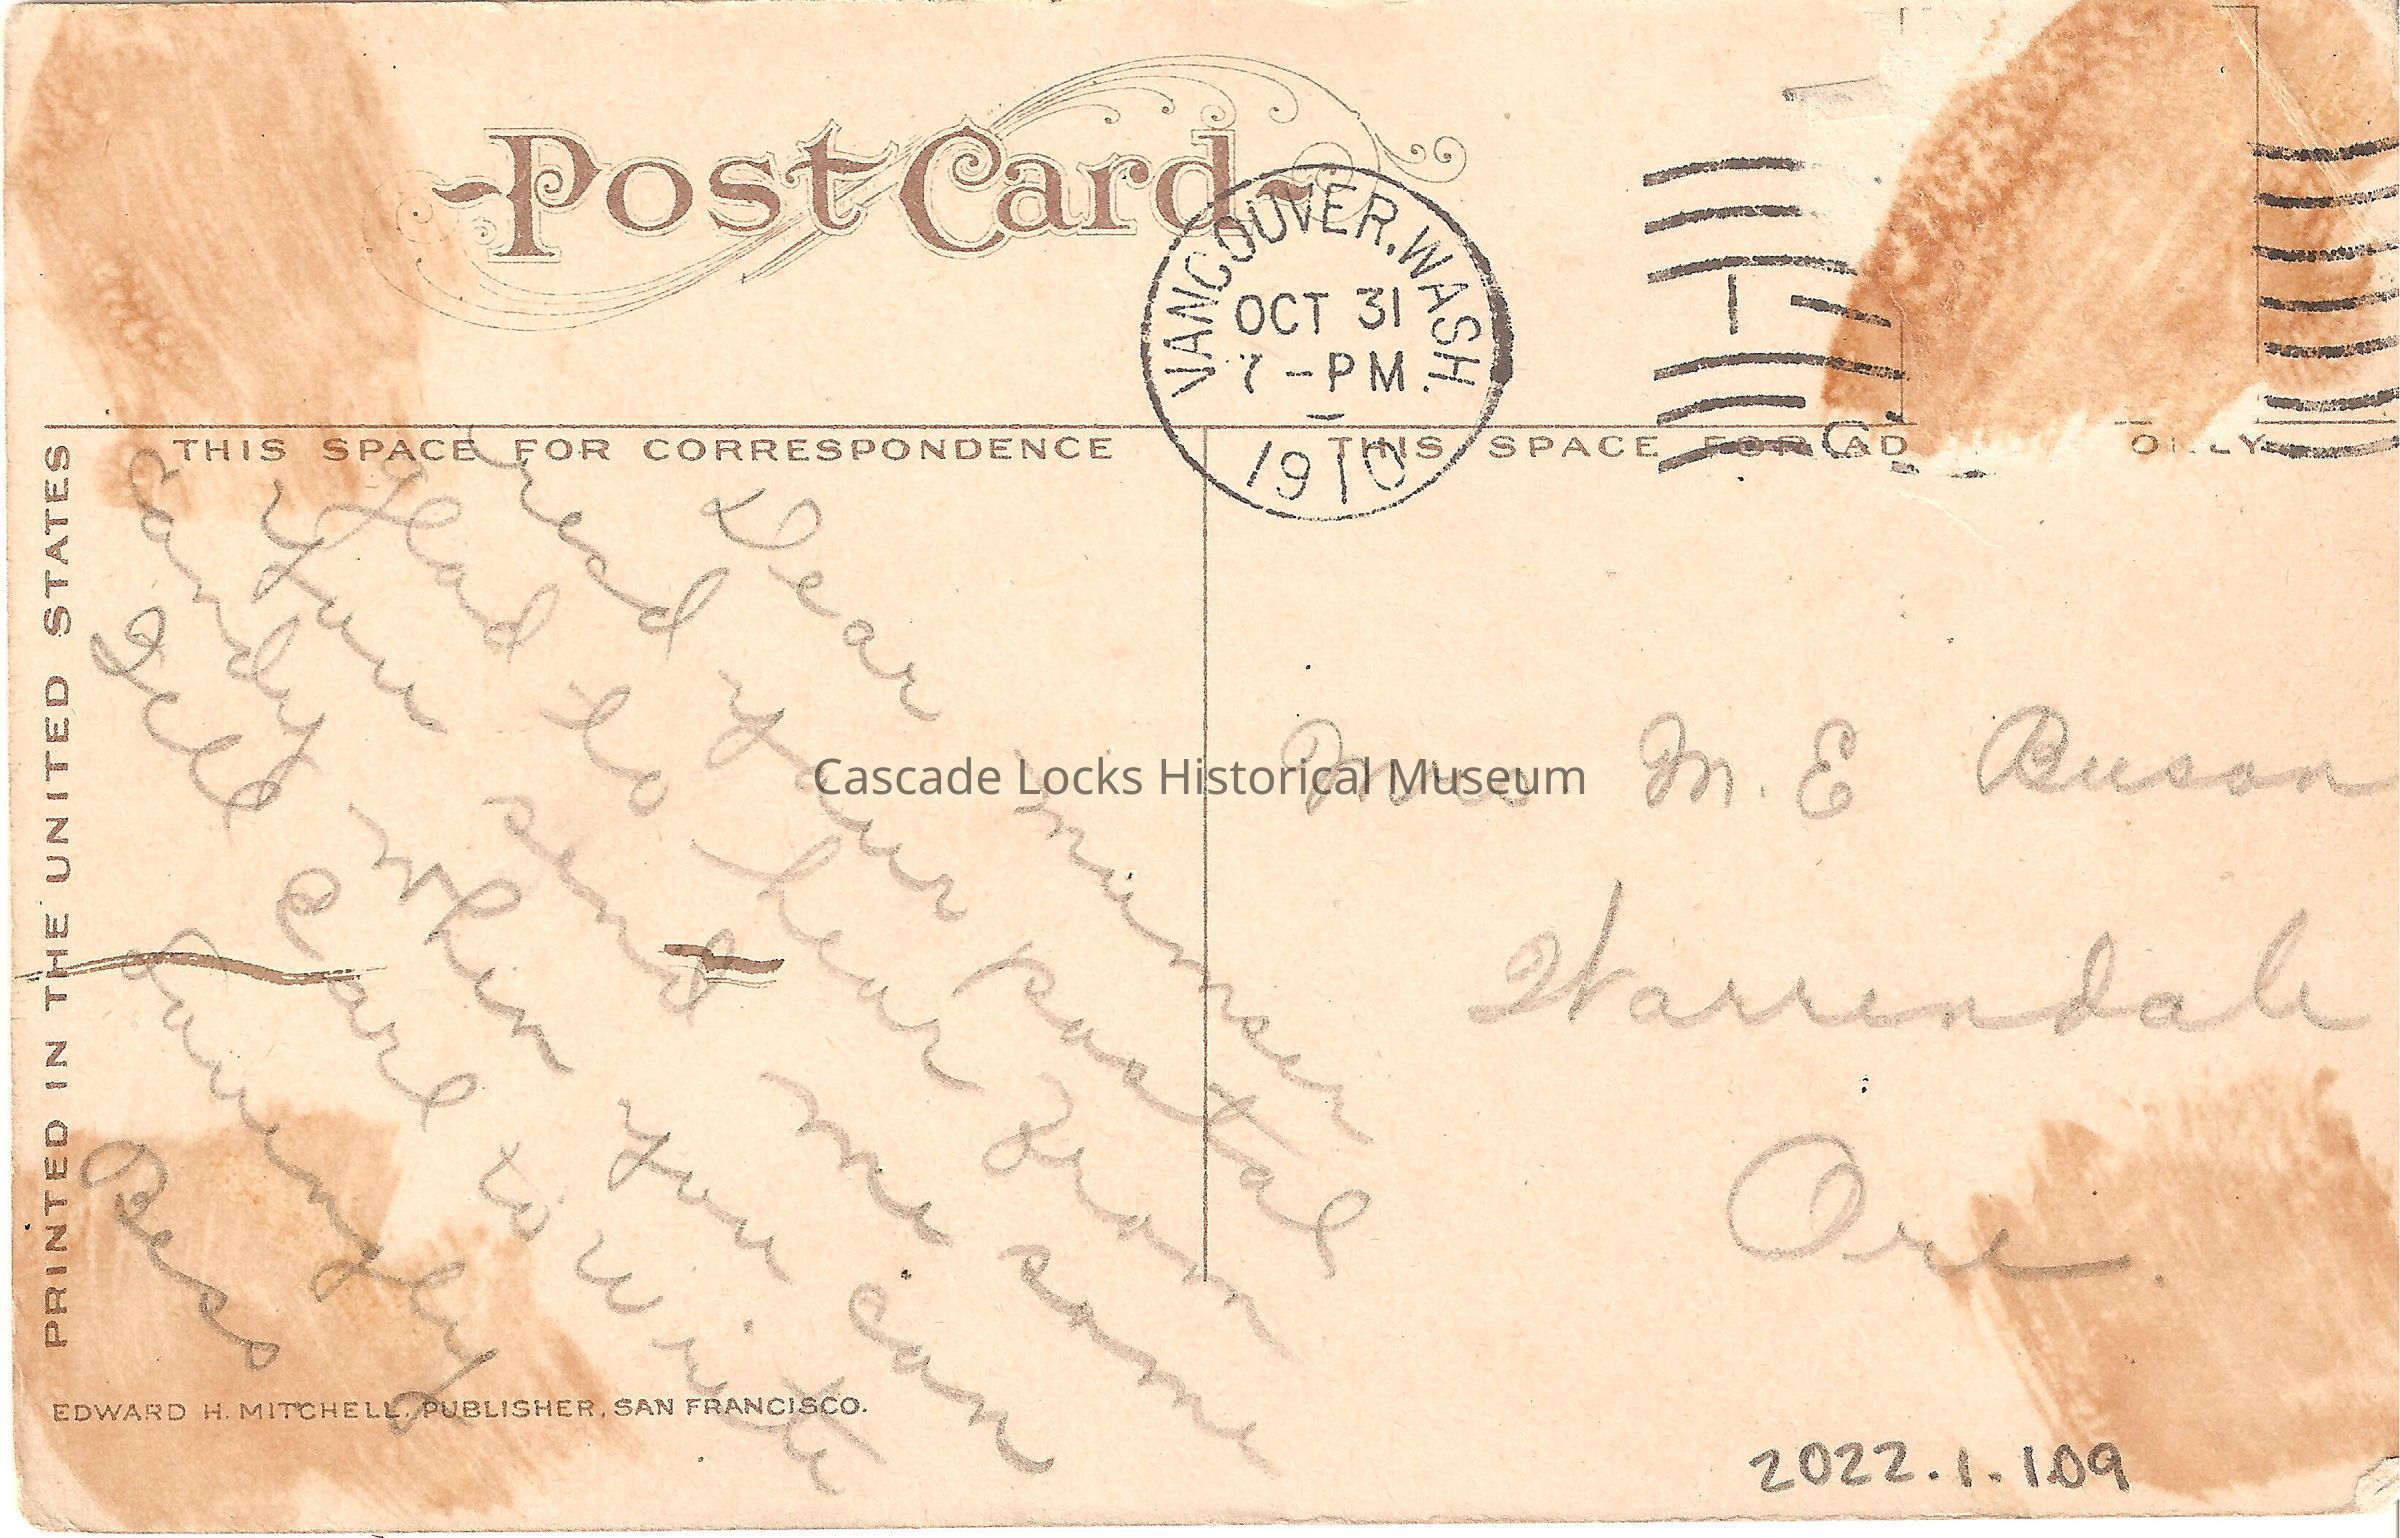 Post Card
VANCOUVER, WASH.
OCT 31
7-PM
1910
THIS SPACE FOR CORRESPONDENCE
THIS SPACE FOR AD ONLY
Dear mumser
recd your postal
glad to hear from
you send me some
candy when you can
Tell Carl to write
Bess
M. E Buson
Warrendale
Ore.
PRINTED IN THE UNITED STATES
EDWARD H. MITCHELL, PUBLISHER, SAN FRANCISCO.
2022.1.109
Cascade Locks Historical Museum